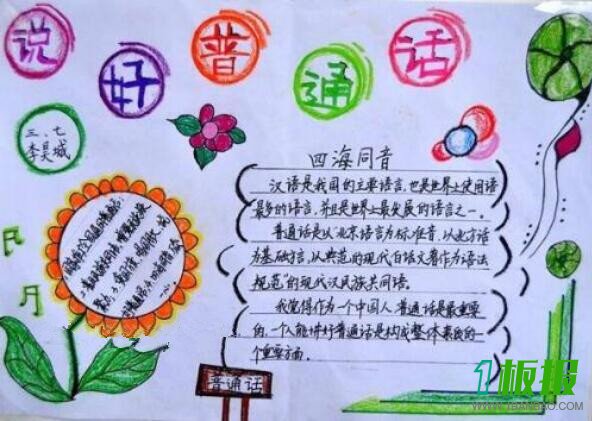 说好普通话
三、七
李昊城
四海同音
汉语是我国的主要语言,也是世界上使用语
最多的语言,并且是世界上最发展的语言之一。
普通话是以北京语言为标准音,以北方话
为基础言,以典范的现代白话文著作为语法
规范"的现代汉民族共同语。
我觉得作为一个中国人,普通话是最重要
的,一个人能讲好普通话是构成整体素质的一
个重要方面。
普通话
1板报
WWW.1BANBAO.COM